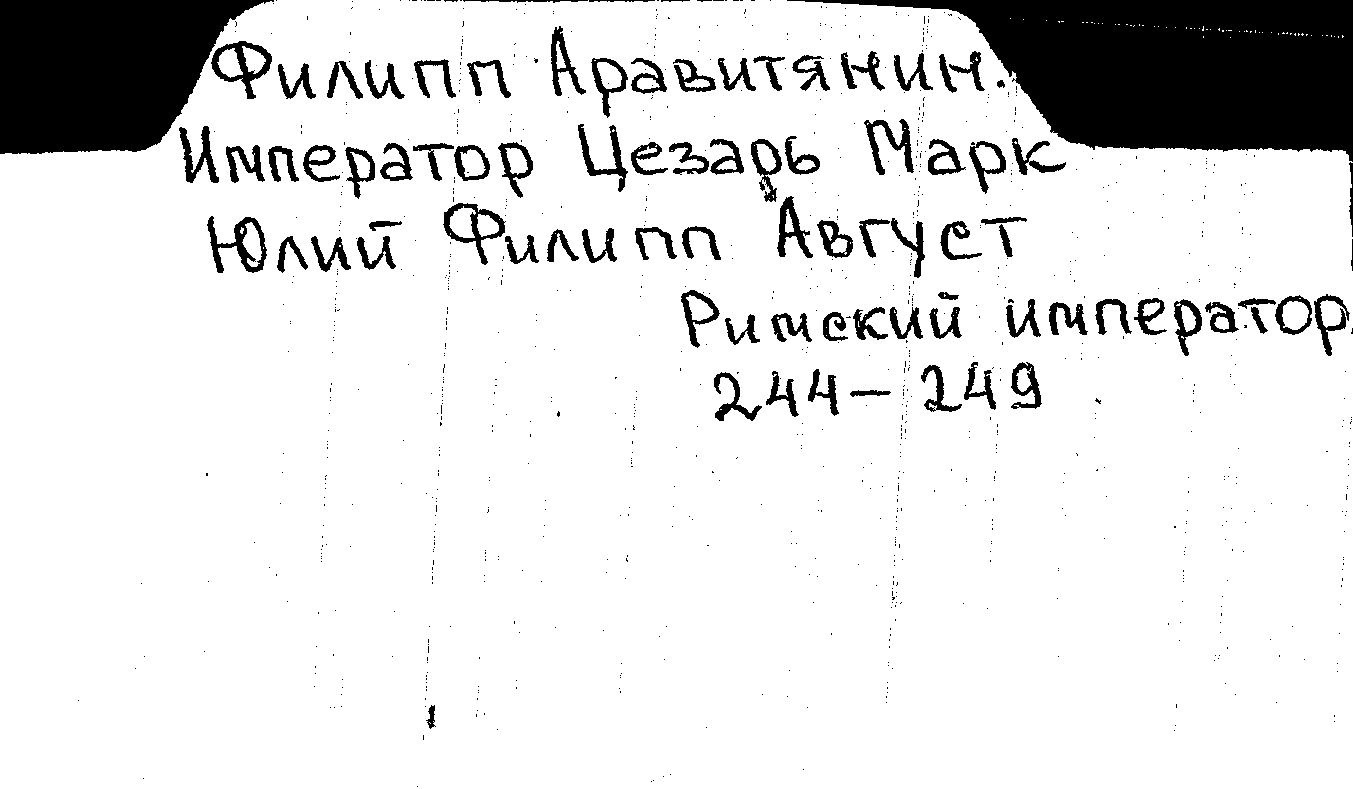 Филипп Аравитянин.
Император Цезарь Марк
Юлий Филипп Август
Римский император
244 – 249